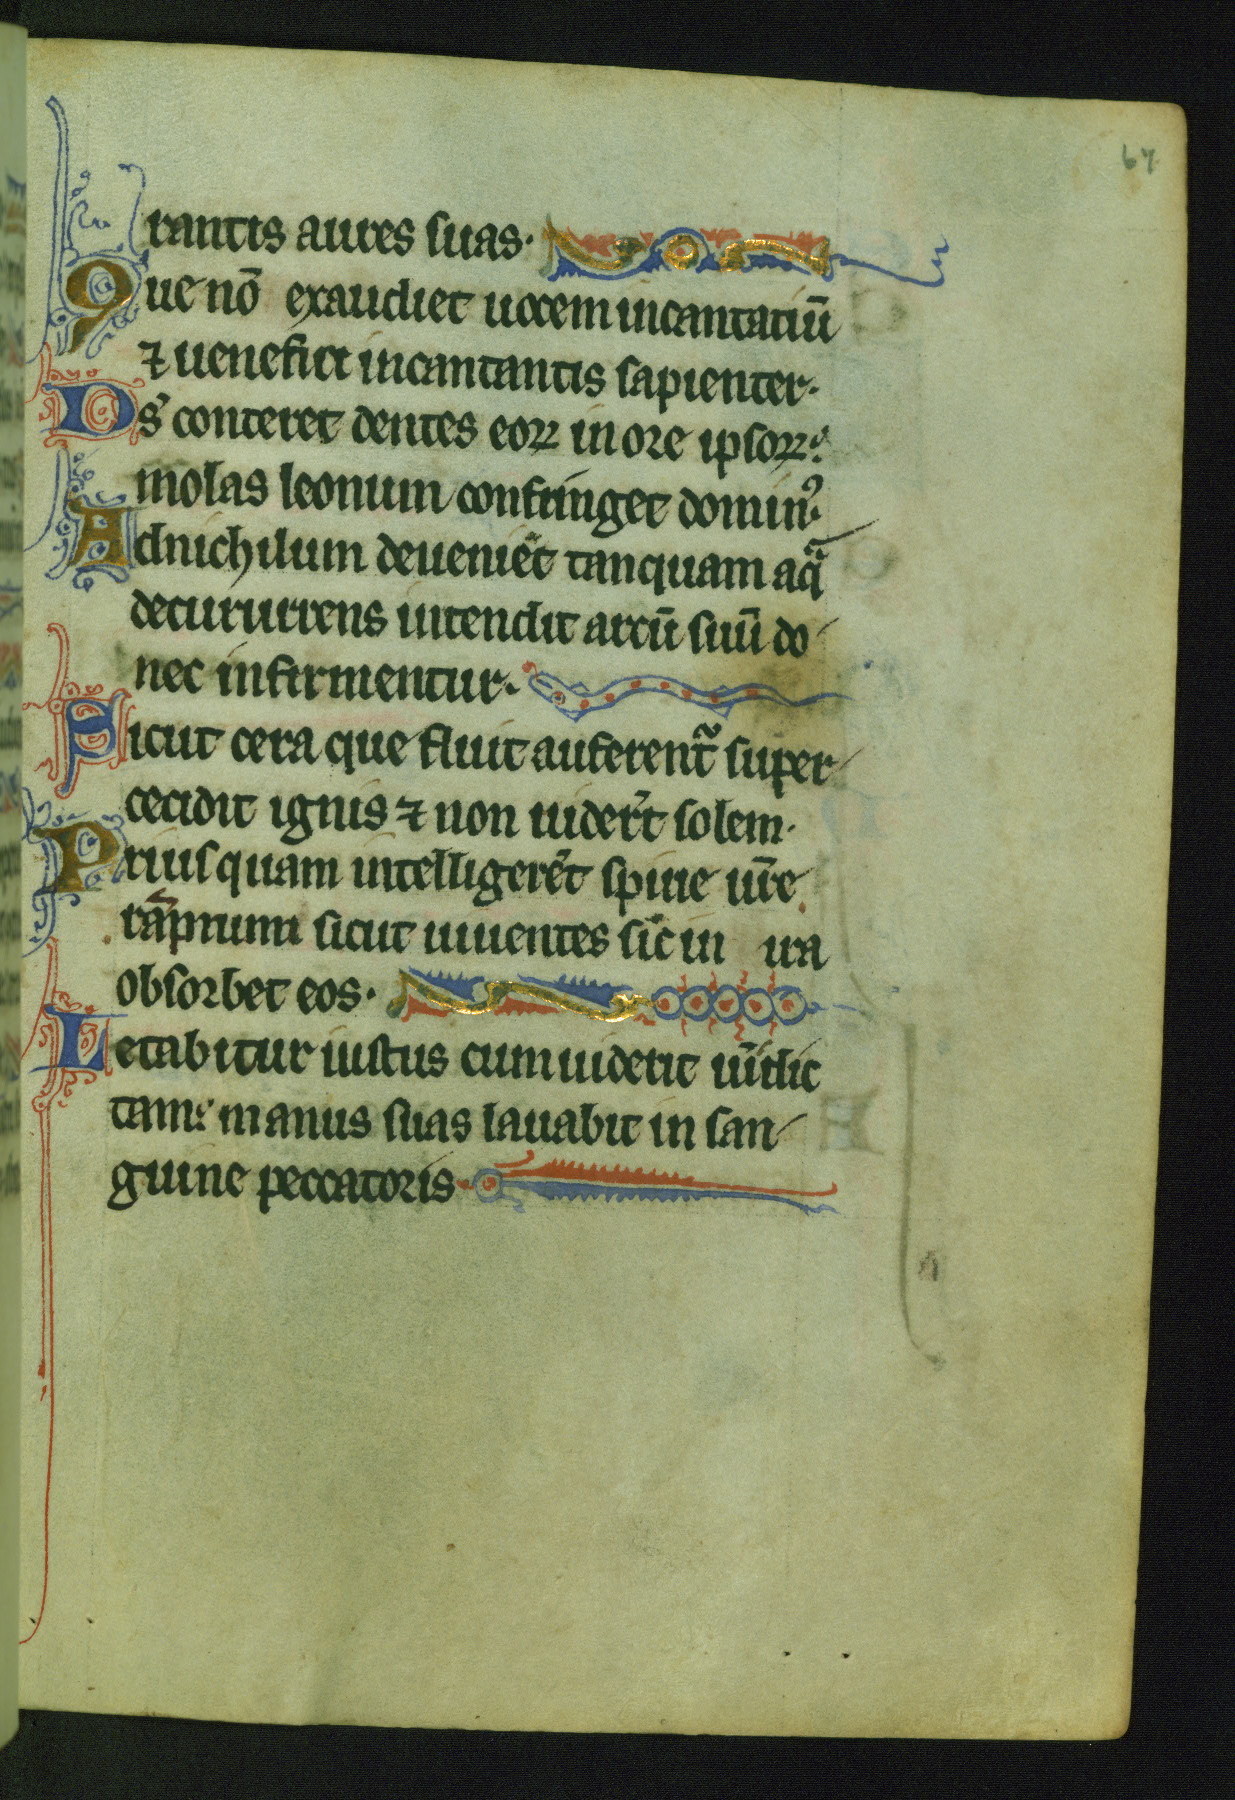 67
rantis aures suas·
Que nō exaudiet uocem incantatiū
⁊ uenefici incantantis sapienter·
Ds᷒ conteret dentes eoꝝ in ore ipsoꝝ:
molas leonum confringet domin᷒·
Adnichilum deueniēt tanquam aqᷓ
decururrens intendit arcū suū do
nec infirmentur·
Sicut cera que fluit auferent᷑ super
cecidit ignis ⁊ non uider̄t solem·
Priusquam intelligerēt spine ur̄e
rāpnum sicut uiuentes sic in ira
obsorbet eos·
Letabitur iustus cum uiderit uīdic
tam: manus suas lauabit in san
guine peccatoris·